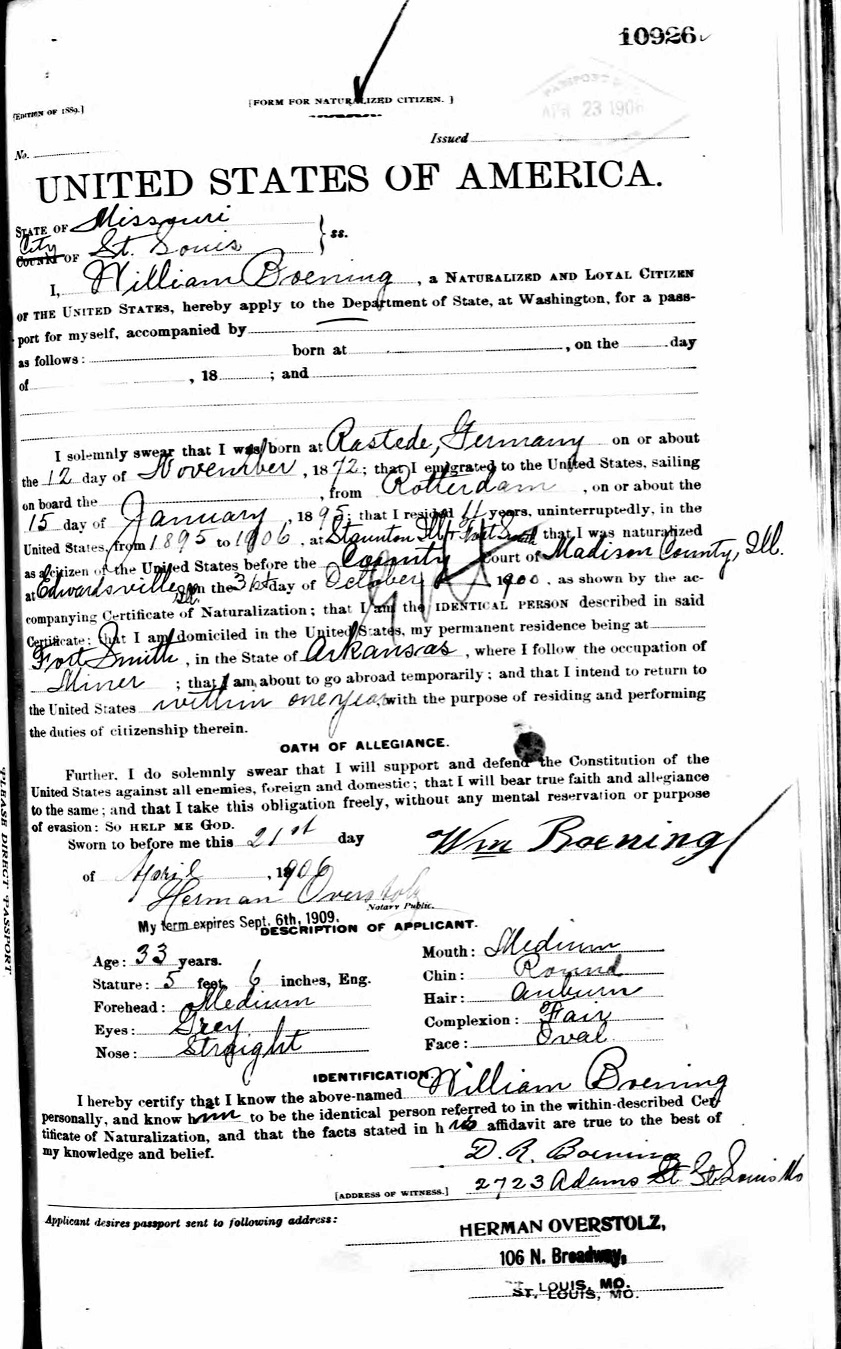 10926
[EDITION OF 1889.]
[FORM FOR NATURALIZED CITIZEN.]
PASSPORT
APR 23 1906
No.
Issued
UNITED STATES OF AMERICA.
STATE OF Missouri
City
COUNTY OF St. Louis } ss.
I, William Boening, a NATURALIZED AND LOYAL CITIZEN
OF THE UNITED STATES, hereby apply to the Department of State, at Washington, for a pass-
port for myself, accompanied by
as follows: born at , on the day
of , 18 ; and
I solemnly swear that I was born at Rastede, Germany on or about
the 12 day of November, 1872; that I emigrated to the United States, sailing
on board the , from Rotterdam, on or about the
15 day of January, 1895; that I resided 11 years, uninterruptedly, in the
United States, from 1895 to 1906, at Staunton Ill & Fort Smith that I was naturalized
as a citizen of the United States before the County Court of Madison County, Ill.
at Edwardsville Ill. on the 31st day of October 1900, as shown by the ac-
companying Certificate of Naturalization; that I am the IDENTICAL PERSON described in said
Certificate; that I am domiciled in the United States, my permanent residence being at
Fort Smith, in the State of Arkansas, where I follow the occupation of
Miner; that I am about to go abroad temporarily; and that I intend to return to
the United States within one year, with the purpose of residing and performing
the duties of citizenship therein.
OATH OF ALLEGIANCE.
Further, I do solemnly swear that I will support and defend the Constitution of the
United States against all enemies, foreign and domestic; that I will bear true faith and allegiance
to the same; and that I take this obligation freely, without any mental reservation or purpose
of evasion: SO HELP ME GOD.
Sworn to before me this 21st day
Wm Boening
of April, 1906
Herman Overstolz
Notary Public.
My term expires Sept. 6th, 1909.
DESCRIPTION OF APPLICANT.
Age: 33 years.
Stature: 5 feet, 6 inches, Eng.
Forehead: Medium
Eyes: Grey
Nose: Straight
Mouth: Medium
Chin: Round
Hair: Auburn
Complexion: Fair
Face: Oval
IDENTIFICATION.
I hereby certify that I know the above-named William Boening
personally, and know him to be the identical person referred to in the within-described Cer-
tificate of Naturalization, and that the facts stated in his affidavit are true to the best of
my knowledge and belief.
D. R. Boening
[ADDRESS OF WITNESS.] 2723 Adams St St Louis Mo
Applicant desires passport sent to following address:
HERMAN OVERSTOLZ,
106 N. Broadway,
ST. LOUIS, MO.
ST. LOUIS, MO.
PLEASE DIRECT PASSPORT